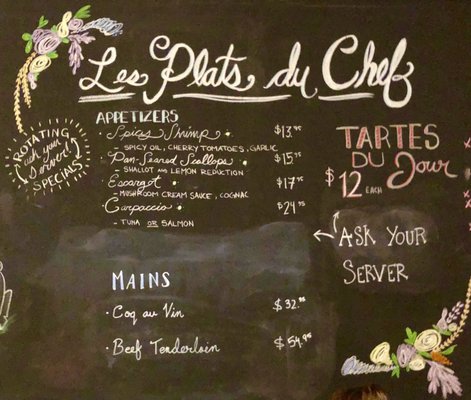 Les Plats du Chef
APPETIZERS
Spicy Shrimp • $13.95
- SPICY OIL, CHERRY TOMATOES, GARLIC
Pan-Seared Scallops • $15.95
- SHALLOT AND LEMON REDUCTION
Escargot • $17.95
- MUSHROOM CREAM SAUCE, COGNAC
Carpaccio • $24.95
- TUNA OR SALMON
ROTATING
(ask your
server!)
SPECIALS
MAINS
• Coq au Vin $32.95
• Beef Tenderloin $54.95
TARTES
DU Jour
$12 EACH
ASK YOUR
SERVER